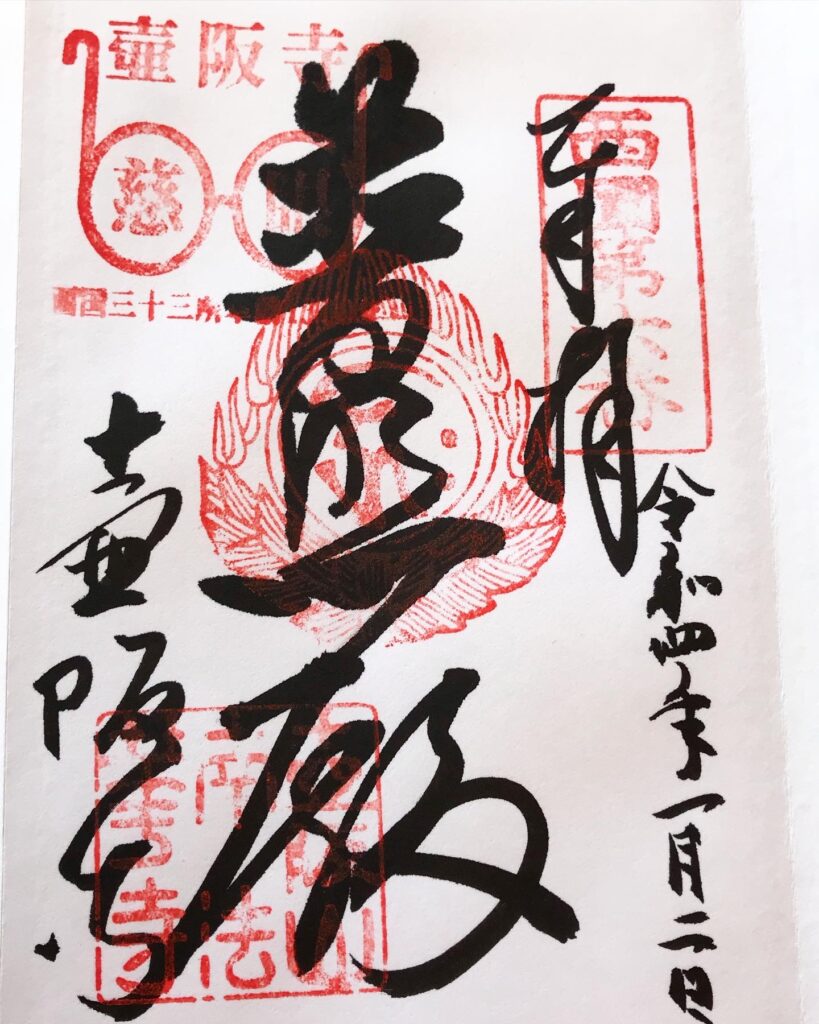 西国第六番
奉拝
令和四年一月二日
普照殿
壺阪寺
慈
三十三所
壷阪山
南法
華寺
壷阪寺